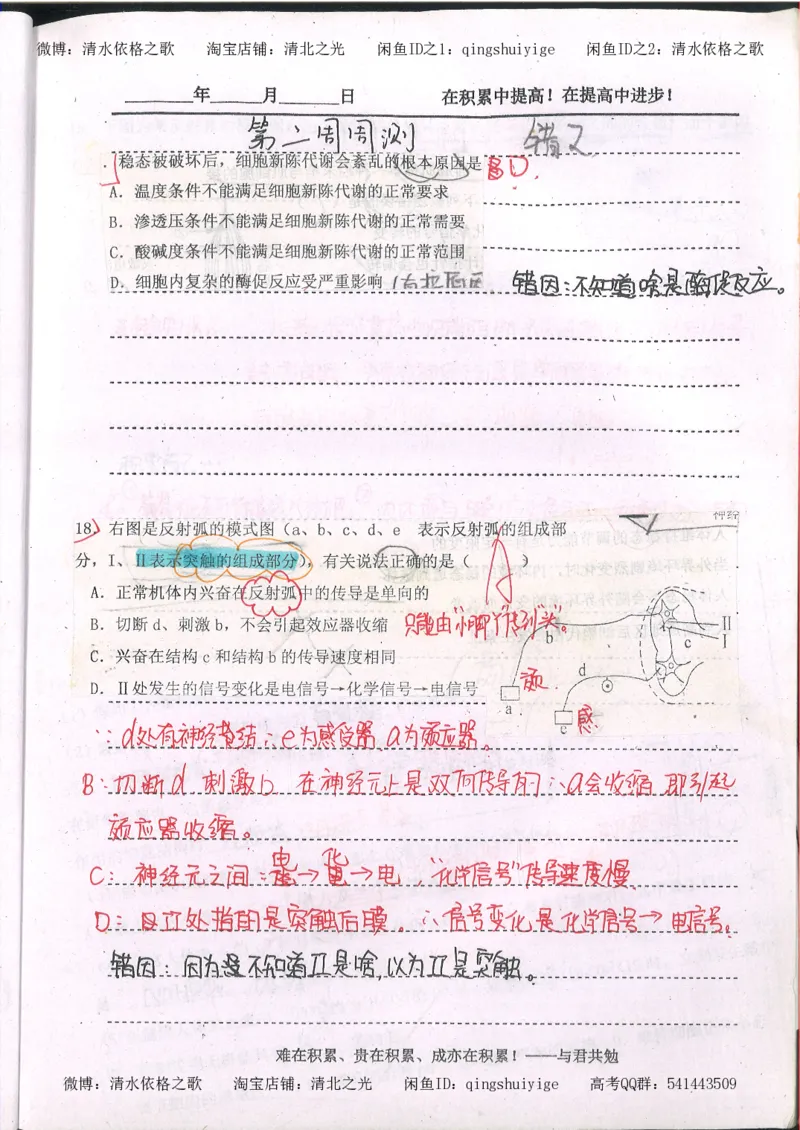 微博：清水依格之歌 淘宝店铺：清北之光 闲鱼ID之1：qingshuiyige 闲鱼ID之2：清水依格之歌
年 月 日 在积累中提高！在提高中进步！
第二周周测 错又
稳态被破坏后，细胞新陈代谢会紊乱的根本原因是
A．温度条件不能满足细胞新陈代谢的正常要求
B．渗透压条件不能满足细胞新陈代谢的正常需要
C．酸碱度条件不能满足细胞新陈代谢的正常范围
D．细胞内复杂的酶促反应受严重影响
错因：不知道啥是酶促反应。
神经
18．右图是反射弧的模式图（a、b、c、d、e 表示反射弧的组成部
分，I、II表示突触的组成部分），有关说法正确的是（ ）
A
A．正常机体内兴奋在反射弧中的传导是单向的
B．切断d、刺激b，不会引起效应器收缩
只能由"小脚"传到"头"。
C．兴奋在结构c和结构b的传导速度相同
D．II处发生的信号变化是电信号→化学信号→电信号
b
c
II
I
d
a
效
e
感
∵d处有神经节结∴e为感受器 a为效应器。
B：切断d 刺激b 在神经元上是双向传导的∴a会收缩 即引起
效应器收缩。
C：神经元之间：电→化→电 "化学信号"传导速度慢
D：II处指的是突触后膜。∴信号变化是化学信号→电信号。
错因：因为不知道II是啥,以为II是突触。
难在积累、贵在积累、成亦在积累！——与君共勉
微博：清水依格之歌 淘宝店铺：清北之光 闲鱼ID：qingshuiyige 高考QQ群：541443509